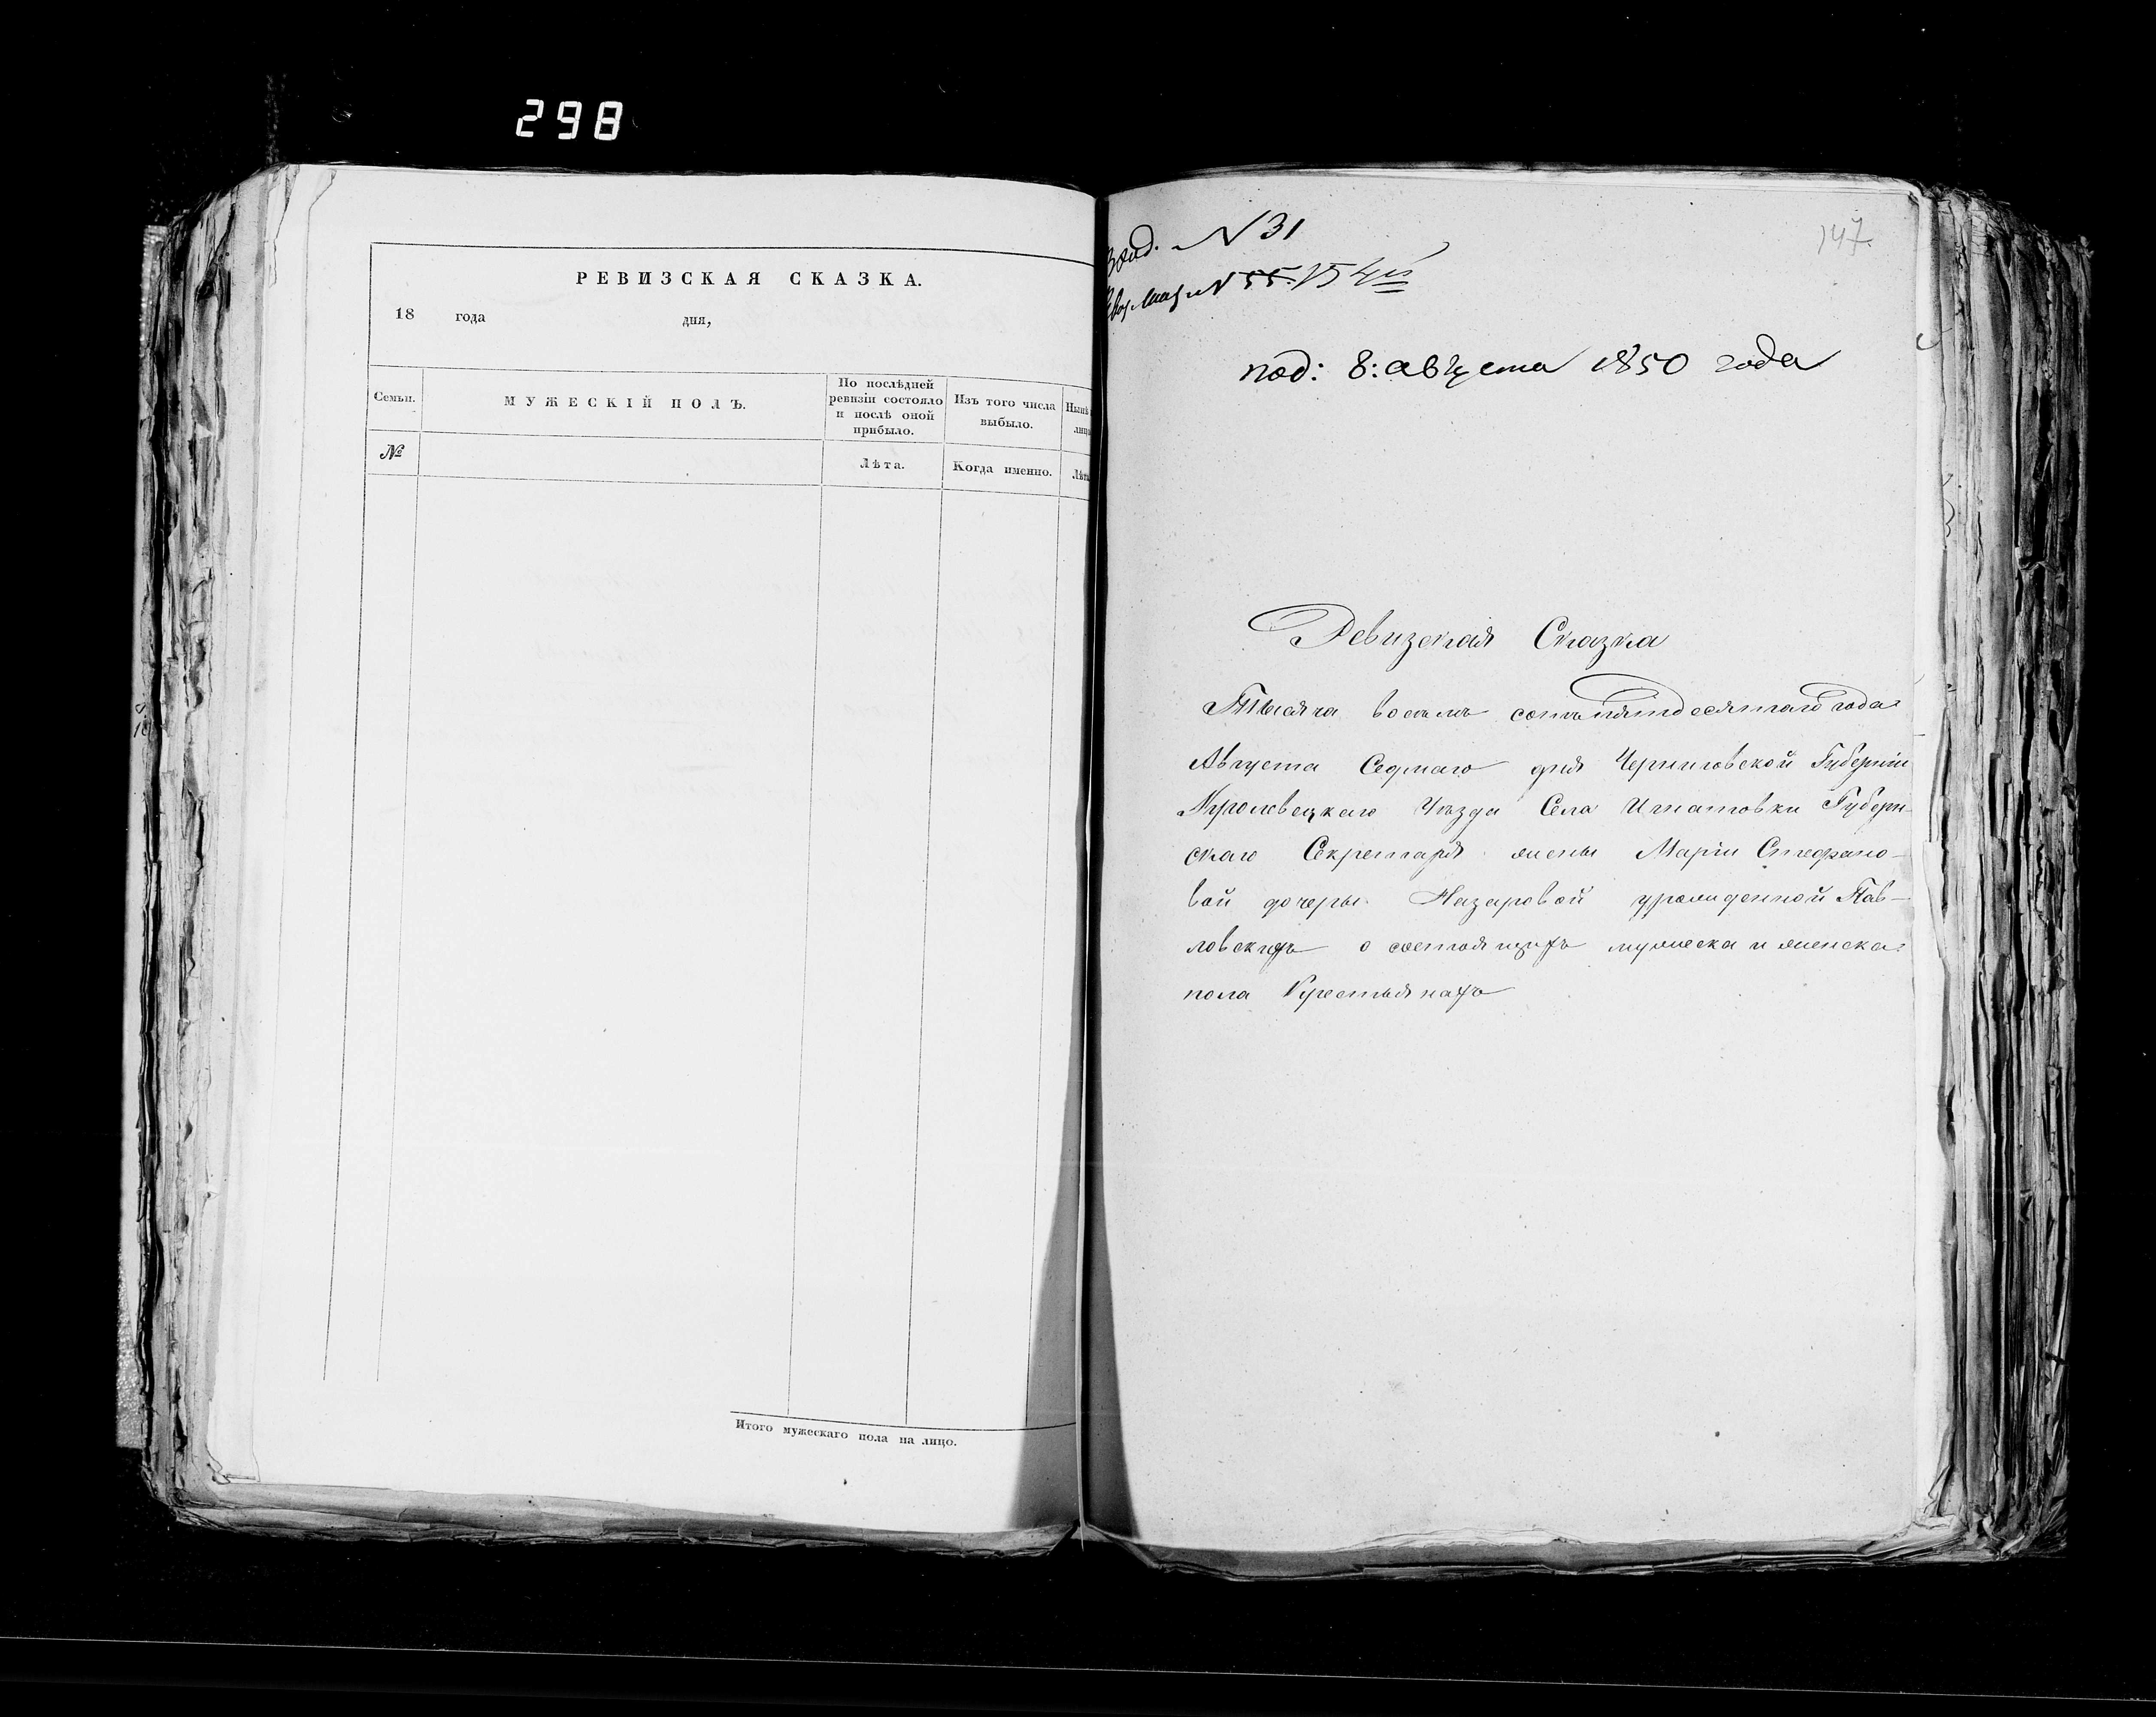 298
РЕВИЗСКАЯ СКАЗКА.
18 года дня,
Семьи.
МУЖЕСКІЙ ПОЛЪ.
По послѣдней
ревизіи состояло
и послѣ оной
прибыло.
Изъ того числа
выбыло.
№
Лѣта.
Когда именно.
Итого мужескаго пола на лицо.
N 31
147.
N 55.
под: 8: августа 1850 года
Ревизская Сказка
Тысяча восемь сотъ пятдесятаго года
Августа Седмаго дня Черниговской Губерніи
Кролевецкаго Уѣзда Села Игнатовки Губерн-
скаго Секретаря жены Маріи Стефано-
вой дочеры Назаровой урожденной Пав-
ловскихъ о состоящихъ мужеска и женска
пола Крестьянахъ